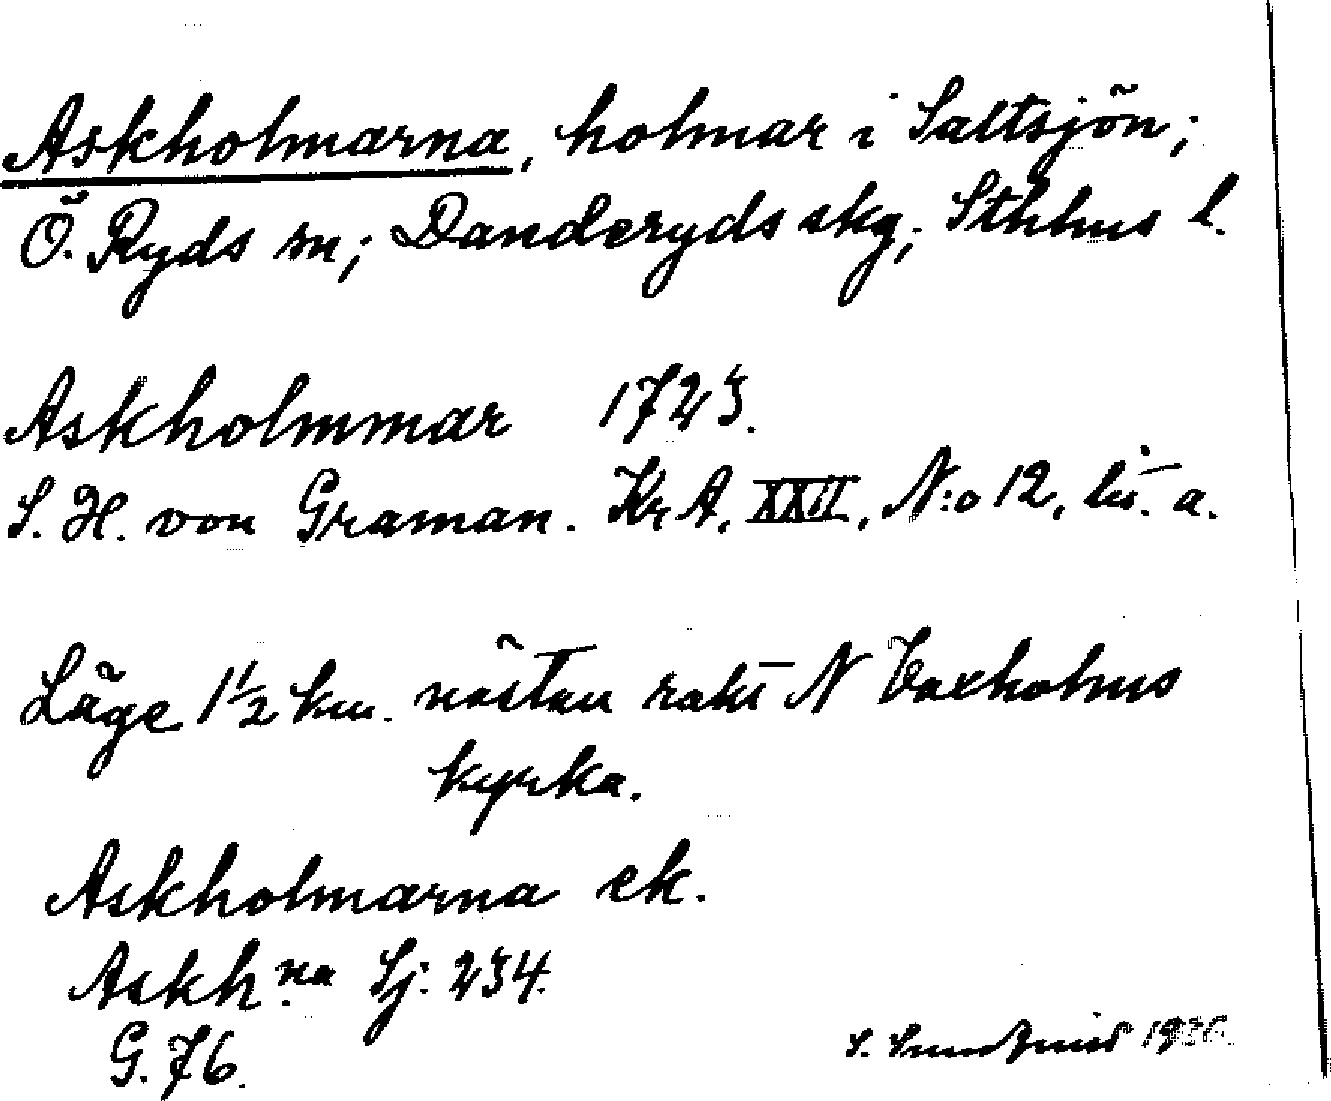 Askholmarna, holmar i Saltsjön;
Ö. Ryds sn; Danderyds skg; Sthlms l.
Askholmmar 1723.
S. H. von Graman. Kr A. XXII, N:o 12, lit. a.
Läge 1 1/2 km. nästan rakt N Vaxholms
kyrka.
Askholmarna ek.
Askh:na Sj: 234.
G. 76.
S.